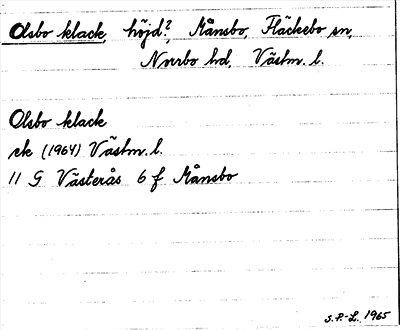 Olsbo klack, höjd?, Månsbo, Fläckebo sn,
Norrbo hd, Västm. l.
Olsbo klack
ek (1964) Västm. l.
11 G Västerås 6 f Månsbo
S.P.-L. 1965